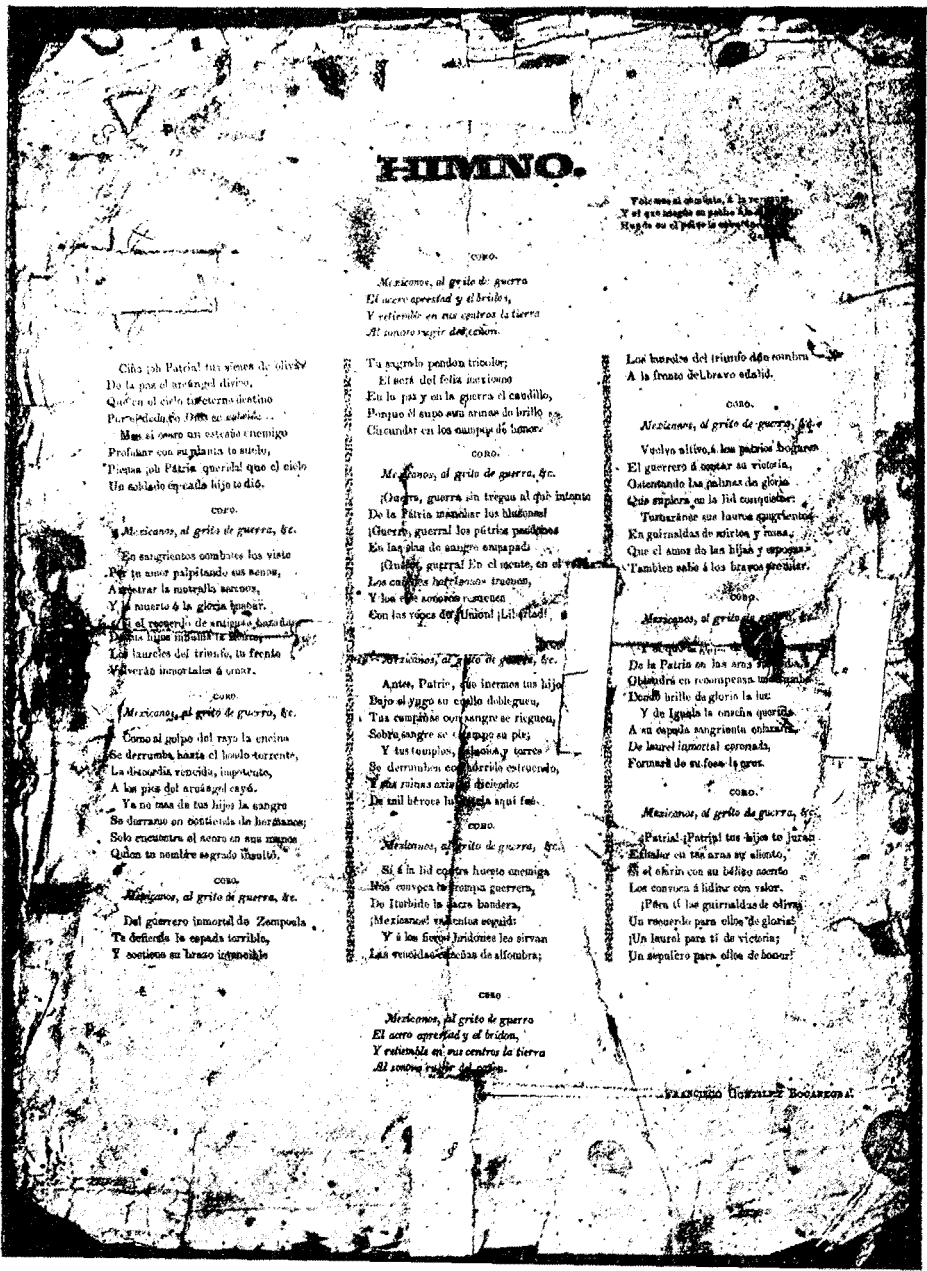 HIMNO.
Volemos al combate, á la
Y el que niegue su pecho á
Hunda en el polvo la
CORO.
Mexicanos, al grito de guerra
El acero aprestad y el bridon,
Y retiemble en sus centros la tierra
Al sonoro rugir del cañon.
Ciña ¡oh Patria! tus sienes de oliva
De la paz el arcángel divino,
Que en el cielo tu eterno destino
Por el dedo de Dios se
Mas si osare un estraño enemigo
Profanar con su planta tu suelo,
Piensa ¡oh Pátria querida! que el cielo
Un soldado en cada hijo te dió.
CORO.
Mexicanos, al grito de guerra, &c.
En sangrientos combates los viste
Por tu amor palpitando sus senos,
Arrostrar la metralla serenos,
Y la muerte ó la gloria buscar.
Si el recuerdo de antiguas hazañas
De tus hijos inflama la
Los laureles del triunfo, tu frente
Volverán inmortales á ornar.
CORO.
Mexicanos, al grito de guerra, &c.
Como al golpe del rayo la encina
Se derrumba hasta el hondo torrente,
La discordia vencida, impotente,
A los pies del arcángel cayó.
Ya no mas de tus hijos la sangre
Se derrame en contienda de hermanos;
Solo encuentre el acero en sus manos
Quien tu nombre sagrado insultó.
CORO.
Mexicanos, al grito de guerra, &c.
Del guerrero inmortal de Zempoala
Te defiende la espada terrible,
Y sostiene su brazo invencible
Tu sagrado pendon tricolor;
El será del feliz mexicano
En la paz y en la guerra el caudillo,
Porque él supo sus armas de brillo
Circundar en los campos de honor.
CORO.
Mexicanos, al grito de guerra, &c.
¡Guerra, guerra sin tregua al que intente
De la Pátria manchar los blasones!
¡Guerra, guerra! los pátrios pendones
En las olas de sangre empapad.
¡Guerra, guerra! En el monte, en el
Los cañones horrísonos truenen,
Y los ecos sonoros resuenen
Con las voces de ¡Union! ¡Libertad!
Mexicanos, al grito de guerra, &c.
Antes, Patria, que inermes tus hijos
Bajo el yugo su cuello dobleguen,
Tus campiñas con sangre se rieguen,
Sobre sangre se estampe su pie;
Y tus templos, palacios y torres
Se derrumben con hórrido estruendo,
Y sus ruinas existan diciendo:
De mil héroes la patria aquí fué.
CORO.
Mexicanos, al grito de guerra, &c.
Si á la lid contra hueste enemiga
Nos convoca la trompa guerrera,
De Iturbide la sacra bandera,
¡Mexicanos! valientes seguid:
Y á los fieros bridones les sirvan
Las vencidas enseñas de alfombra;
Los laureles del triunfo den sombra
A la frente del bravo adalid.
CORO.
Mexicanos, al grito de guerra, &c.
Vuelva altivo á los patrios hogares
El guerrero á contar su victoria,
Ostentando las palmas de gloria
Que supiera en la lid conquistar:
Tornaránse sus lauros sangrientos
En guirnaldas de mirtos y rosas,
Que el amor de las hijas y esposas
Tambien sabe á los bravos premiar.
CORO.
Mexicanos, al grito de guerra, &c.
De la Patria en las aras
Obtendrá en recompensa una tumba
Donde brille de gloria la luz:
Y de Iguala la enseña querida
A su espada sangrienta enlazada,
De laurel inmortal coronada,
Formará de su fosa la cruz.
CORO.
Mexicanos, al grito de guerra, &c.
¡Patria! ¡Patria! tus hijos te juran
Exhalar en tus aras su aliento,
Si el clarin con su bélico acento
Los convoca á lidiar con valor.
¡Para tí las guirnaldas de oliva!
¡Un recuerdo para ellos de gloria!
¡Un laurel para tí de victoria;
Un sepulcro para ellos de honor!
CORO
Mexicanos, al grito de guerra
El acero aprestad y el bridon,
Y retiemble en sus centros la tierra
Al sonoro rugir del cañon.
FRANCISCO GONZALEZ BOCANEGRA.